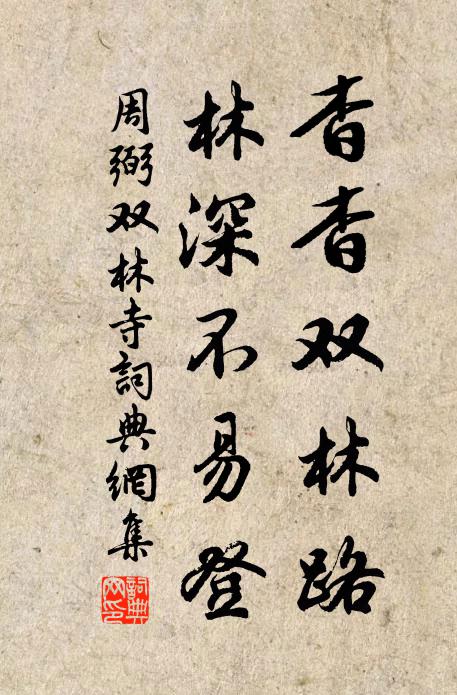 杳杳双林路
林深不易登
周弼双林寺詞典網集
詞典网印